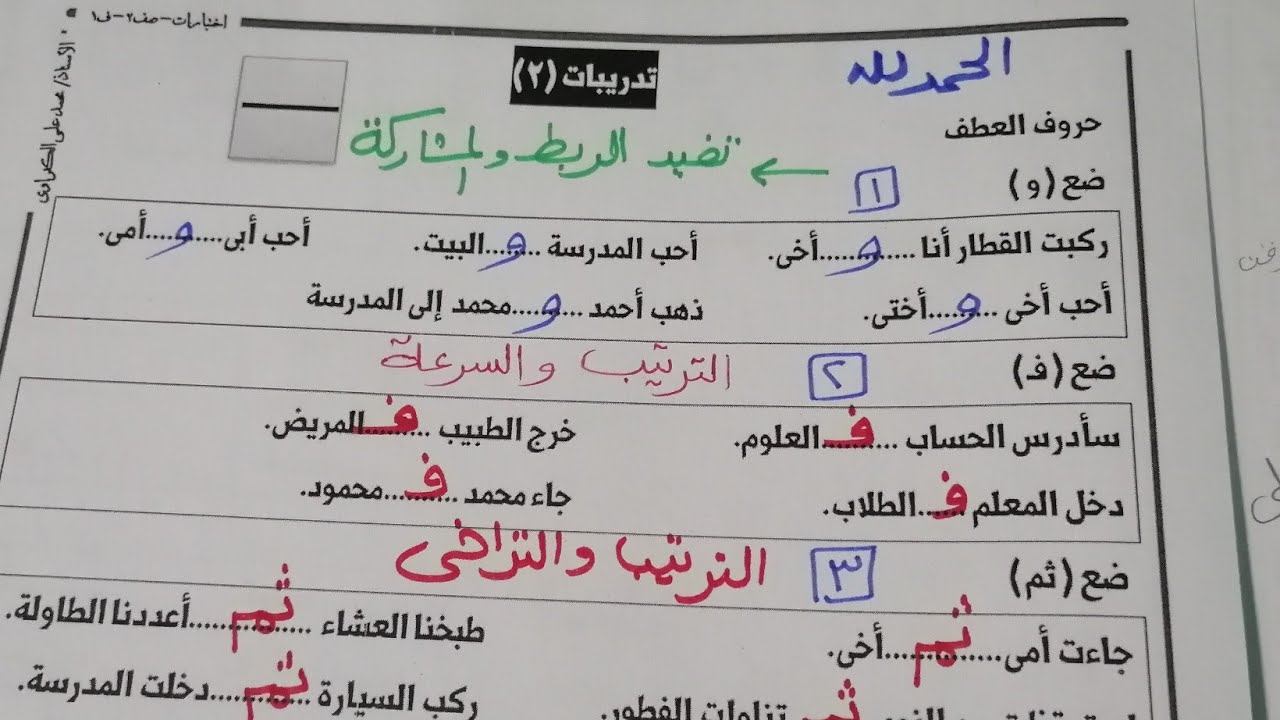 اختبارات - صف٢ - ف١
الأستاذ/ محمد على
الحمد لله
تدريبات (٢)
حروف العطف
تفيد الربط والمشاركة
ضع (و) ١
ركبت القطار أنا ......و......أخى. أحب المدرسة ....و....البيت. أحب أبى......و....أمى.
أحب أخى ....و....أختى. ذهب أحمد ....و....محمد إلى المدرسة
ضع (ف) ٢ الترتيب والسرعة
سأدرس الحساب ....ف....العلوم. خرج الطبيب ....ف....المريض.
دخل المعلم ..ف..الطلاب. جاء محمد ....ف....محمود.
ضع (ثم) ٣ الترتيب والتراخى
جاءت أمى......ثم......أخى. طبخنا العشاء ......ثم......أعددنا الطاولة.
ثم تناولت الفطور. ركب السيارة ......ثم......دخلت المدرسة.